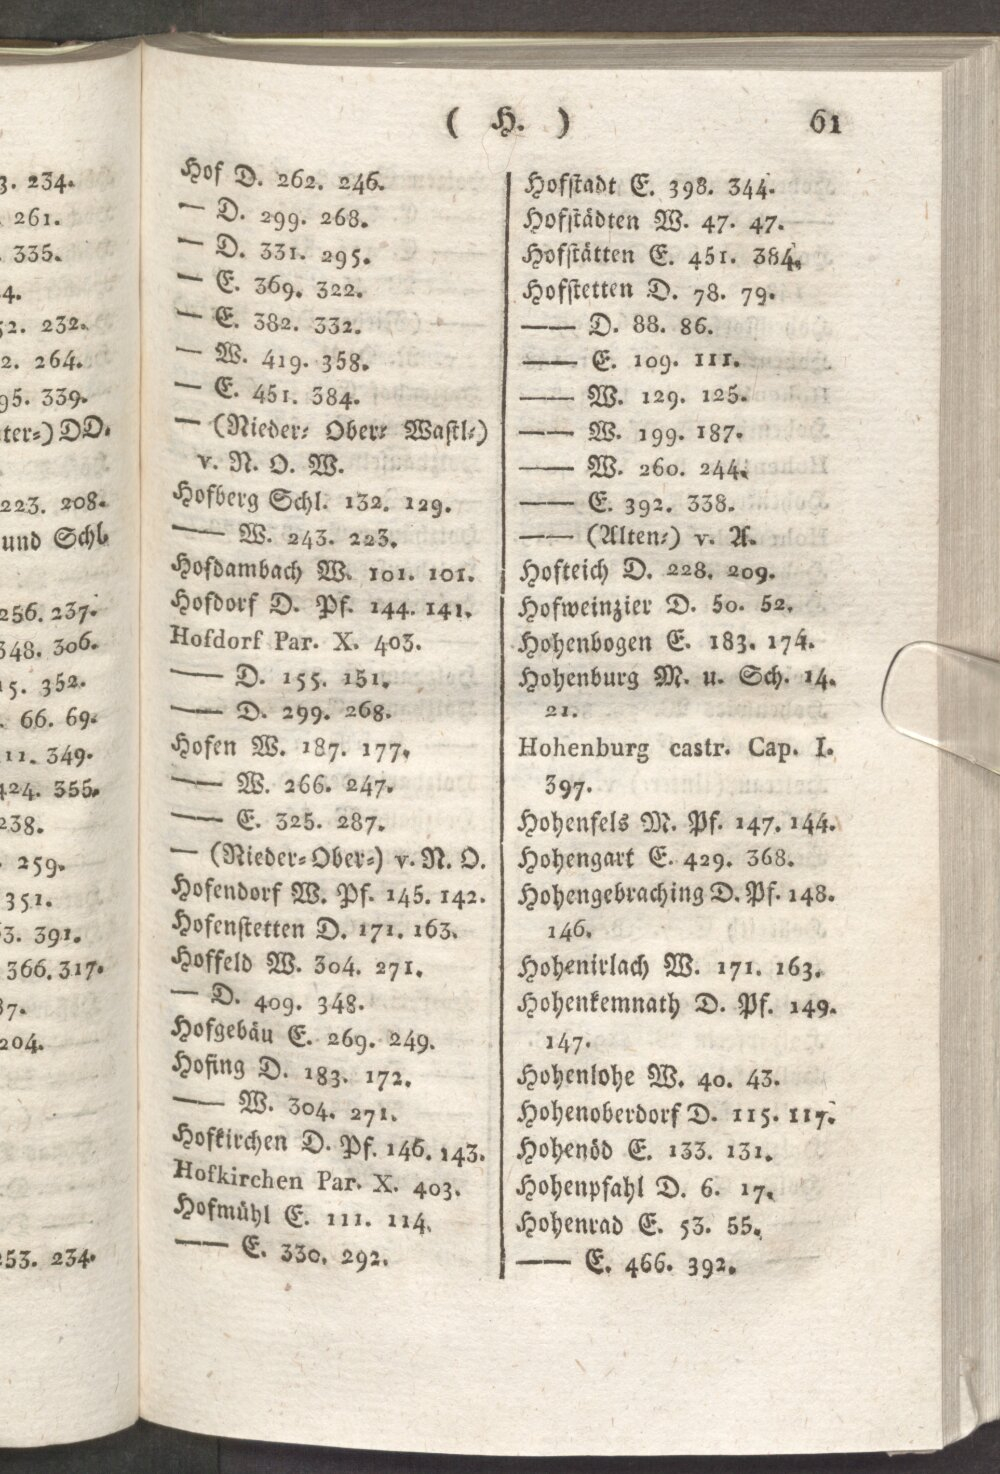 ( H. ) 61
3. 234.
261.
335.
4.
52. 232.
2. 264.
95. 339.
ter=) DD.
223. 208.
und Schl.
256. 237.
348. 306.
15. 352.
66. 69.
11. 349.
424. 355.
238.
259.
351.
53. 391.
366. 317.
37.
204.
253. 234.
Hof D. 262. 246.
— D. 299. 268.
— D. 331. 295.
— E. 369. 322.
— E. 382. 332.
— W. 419. 358.
— E. 451. 384.
— (Nieder= Ober= Wastl=)
v. N. O. W.
Hofberg Schl. 132. 129.
—— W. 243. 223.
Hofdambach W. 101. 101.
Hofdorf D. Pf. 144. 141.
Hofdorf Par. X. 403.
—— D. 155. 151.
—— D. 299. 268.
Hofen W. 187. 177.
—— W. 266. 247.
—— E. 325. 287.
— (Nieder=Ober=) v. N. O.
Hofendorf W. Pf. 145. 142.
Hofenstetten D. 171. 163.
Hoffeld W. 304. 271.
— D. 409. 348.
Hofgebäu E. 269. 249.
Hofing D. 183. 172.
—— W. 304. 271.
Hofkirchen D. Pf. 146. 143.
Hofkirchen Par. X. 403.
Hofmühl E. 111. 114.
—— E. 330. 292.
Hofstadt E. 398. 344.
Hofstädten W. 47. 47.
Hofstätten E. 451. 384.
Hofstetten D. 78. 79.
—— D. 88. 86.
—— E. 109. 111.
—— W. 129. 125.
—— W. 199. 187.
—— W. 260. 244.
—— E. 392. 338.
—— (Alten=) v. A.
Hofteich D. 228. 209.
Hofweinzier D. 50. 52.
Hohenbogen E. 183. 174.
Hohenburg M. u. Sch. 14.
21.
Hohenburg castr. Cap. I.
397.
Hohenfels M. Pf. 147. 144.
Hohengart E. 429. 368.
Hohengebraching D. Pf. 148.
146.
Hohenirlach W. 171. 163.
Hohenkemnath D. Pf. 149.
147.
Hohenlohe W. 40. 43.
Hohenoberdorf D. 115. 117.
Hohenöd E. 133. 131.
Hohenpfahl D. 6. 17.
Hohenrad E. 53. 55.
—— E. 466. 392.